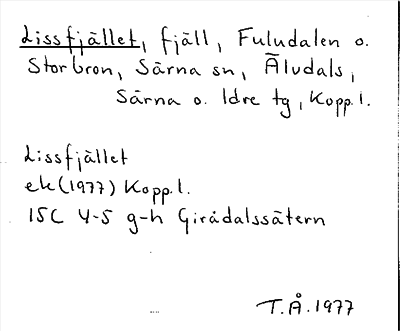 Lissfjället, fjäll, Fuludalen o.
Storbron, Särna sn, Älvdals,
Särna o. Idre tg, Kopp.l.
Lissfjället
ek(1977) Kopp.l.
15C 4-5 g-h Girådalssätern
T.Å.1977